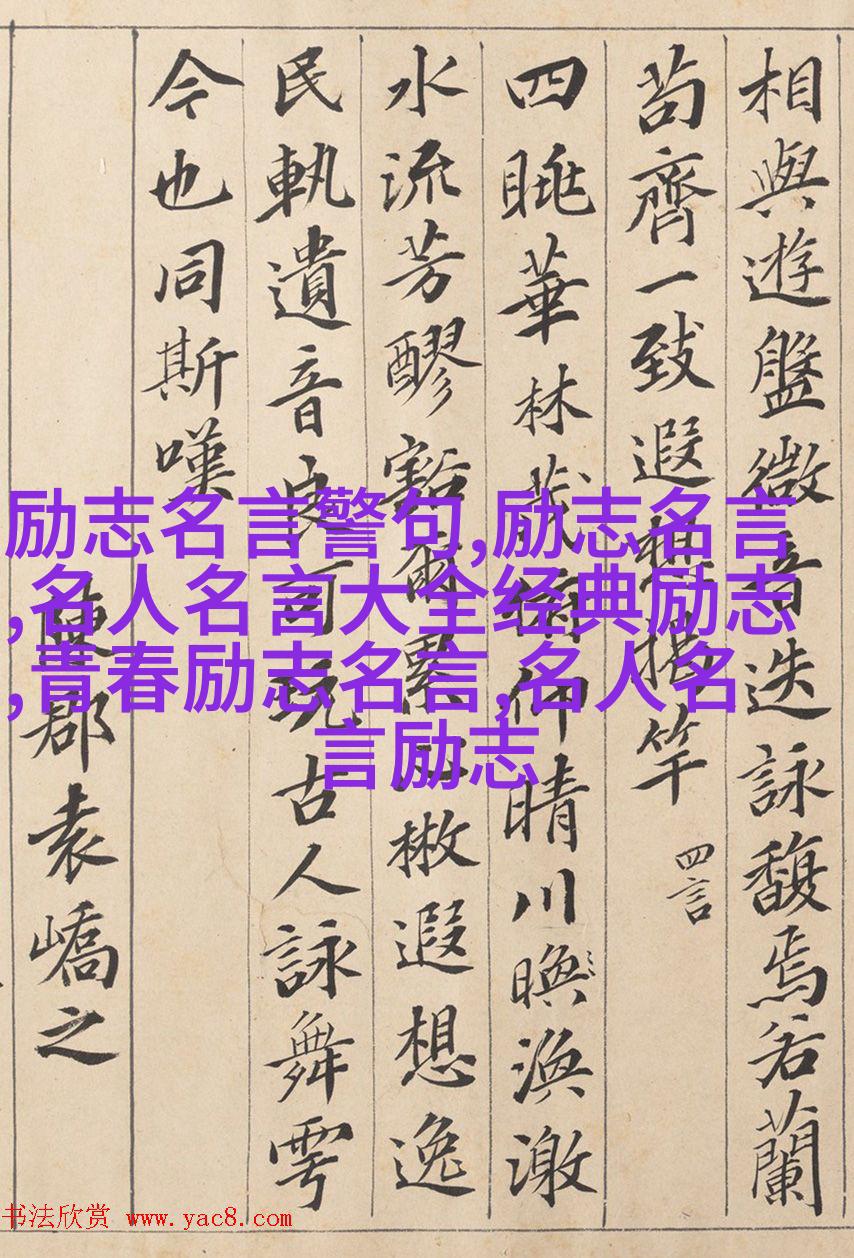 相與遊盤微音迭詠馥焉若蘭
苟齊一致遐想揭竿 四言
四眺華林茂俯仰晴川暎渙激
水流芳醪豁爾累心散遐想逸
民軌遺音良可玩古人詠舞雩
今也同斯嘆
陳郡袁嶠之
励志名言警句,励志名言
,名人名言大全经典励志
,青春励志名言,名人名
言励志
书法欣赏 www.yac8.com